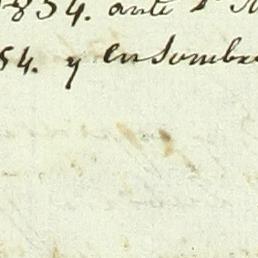 1834. ante
54. y en Sombre